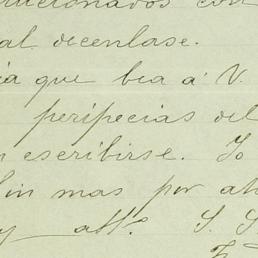 ucionados con
al decenlase.
ia que bea á V.
peripecias del
n escribirse. Yo
Sin mas por ah
y att.º S. S